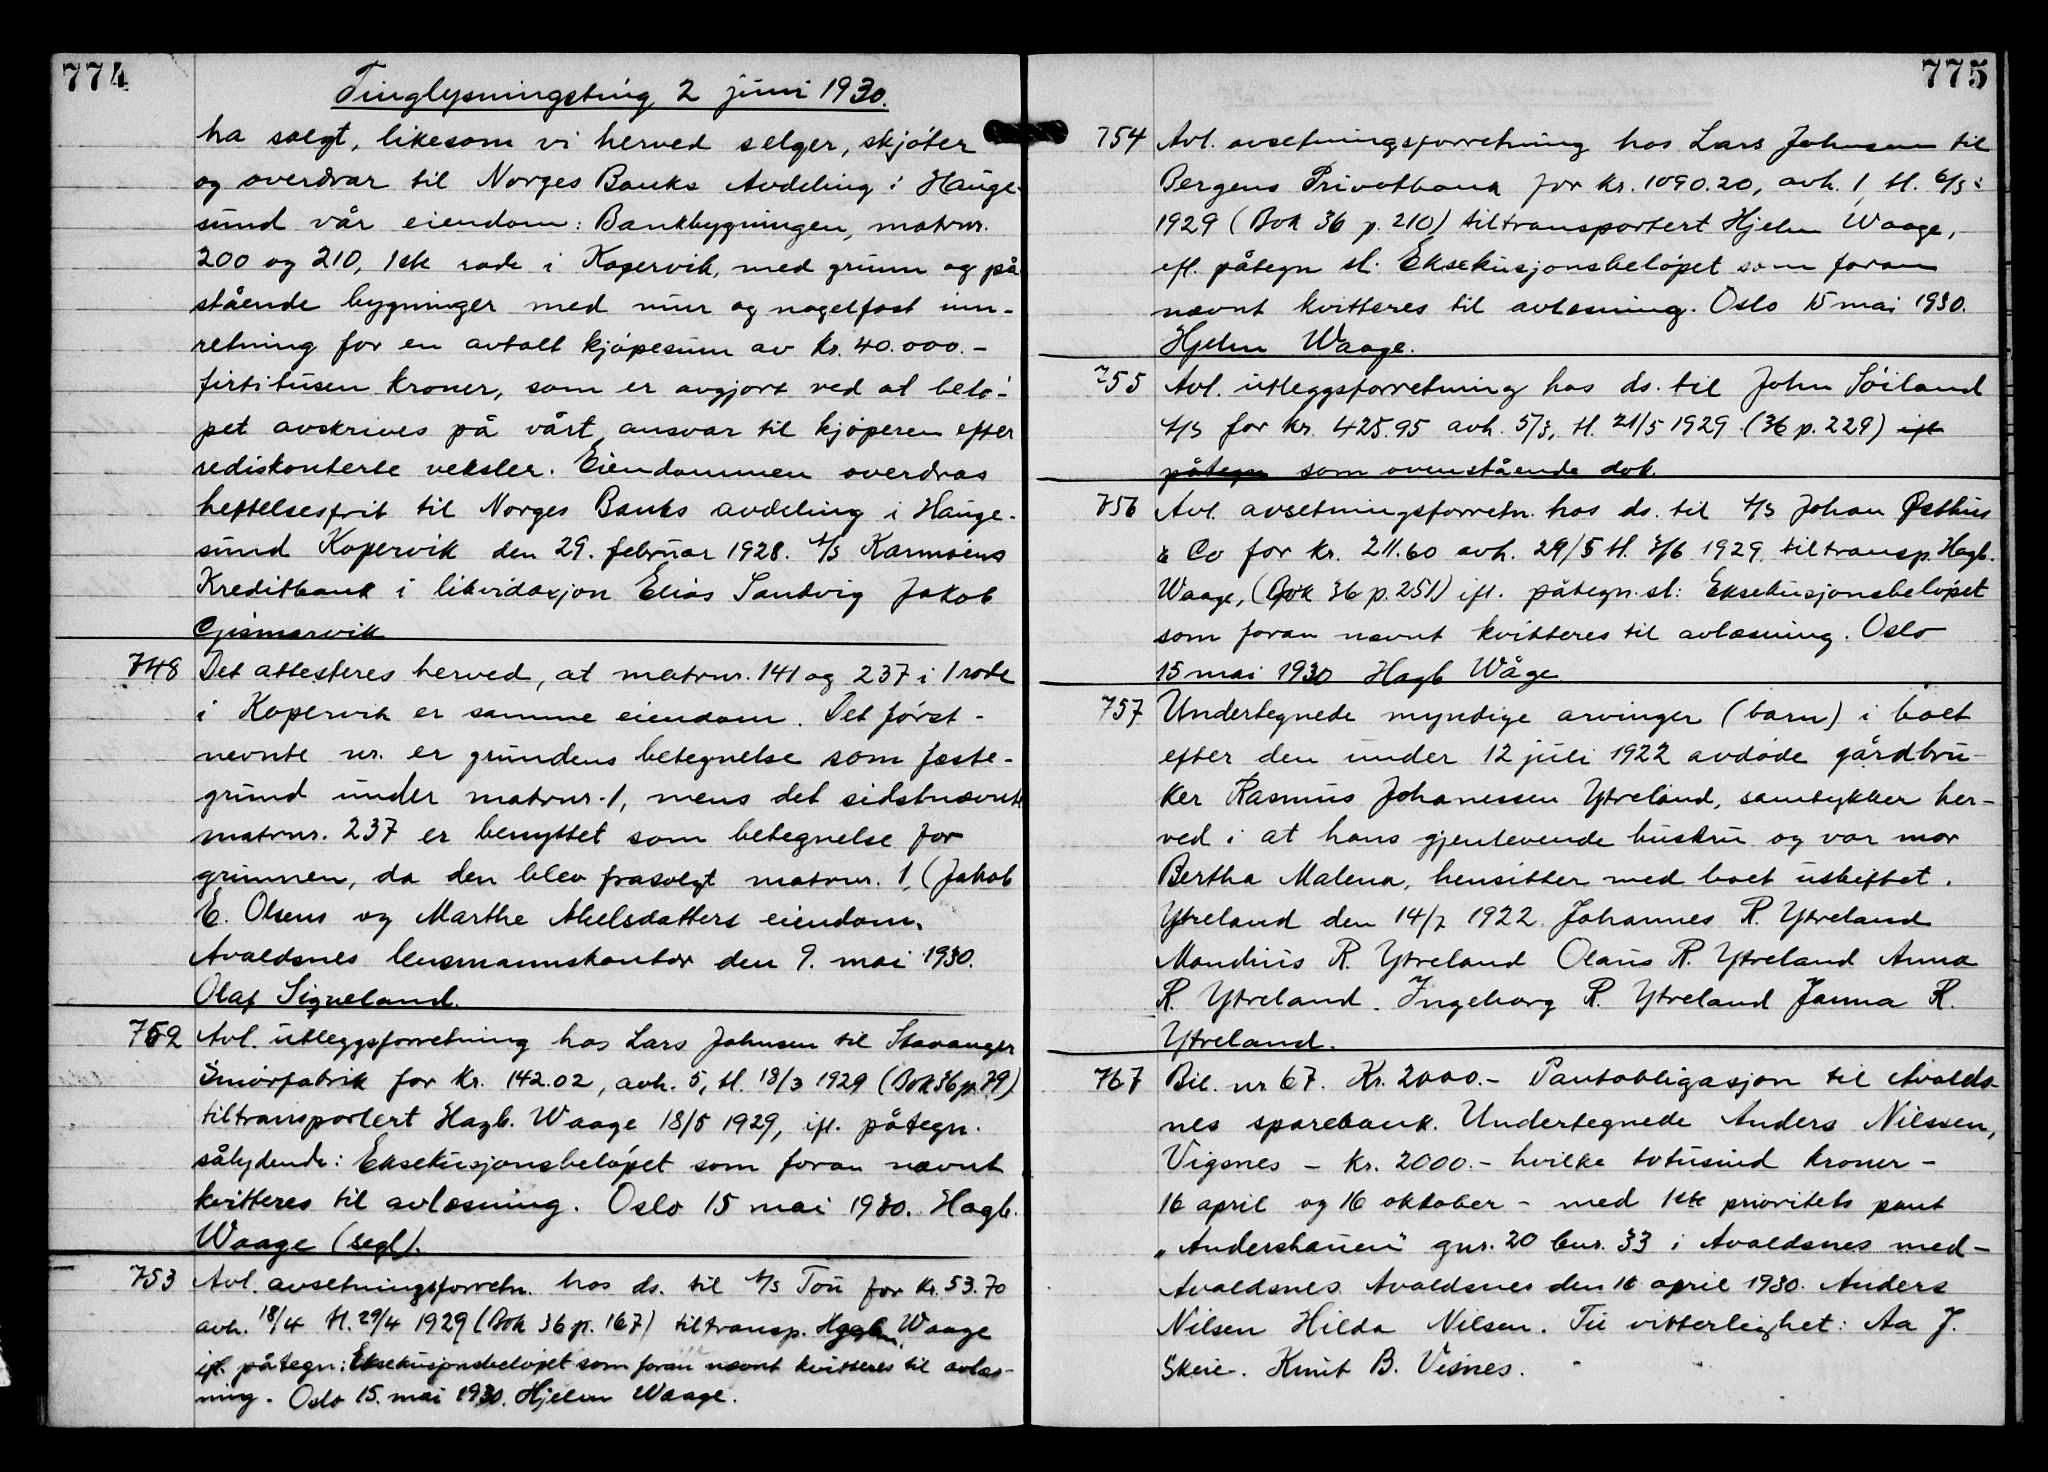 774
Tinglysningsting 2 juni 1930.
ha solgt, likesom vi herved selger, skjøter
og overdrar til Norges Banks Avdeling i Hauge-
sund vår eiendom: Bankbygningen, matrnr.
200 og 210, 1ste rode i Kopervik, med grunn og på
stående bygninger med mur og nagelfast inn-
retning for en avtalt kjøpesum av kr. 40.000.-
firtitusen kroner, som er avgjort ved at belø-
pet avskrives på vårt ansvar til kjøperen efter
rediskonterte veksler. Eiendommen overdras
heftelsesfrit til Norges Banks avdeling i Hauge-
sund Kopervik den 29. februar 1928. A/S Karmøens
Kreditbank i likvidasjon Elias Sandvig Jakob
Gismarvik
748 Det attesteres herved, at matrnr. 141 og 237 i 1 rode
i Kopervik er samme eiendom. Det først-
nevnte nr. er grundens betegnelse som feste-
grund under matrnr. 1, mens det sidstnævnte
matrnr. 237 er benyttet som betegnelse for
grunnen, da den blev frasolgt matrnr. 1, (Jakob
E. Olsens og Marthe Abelsdatters eiendom.
Avaldsnes lensmannskontor den 9. mai 1930.
Olaf Signeland.
752 Avl. utleggsforretning hos Lars Johnsen til Stavanger
Smørfabrik for kr. 142.02, avh. 5, tl. 18/3 1929 (Bok 36 p. 79)
tiltransportert Hagb. Waage 18/5 1929, ifl. påtegn.
sålydende: Eksekusjonsbeløpet som foran nævnt
kvitteres til avløsning. Oslo 15 mai 1930. Hagb.
Waage (segl).
753 Avl. avsetningsforretn. hos ds. til A/S Tou for kr. 53.70
avh. 18/4 tl. 29/4 1929 (Bok 36 p. 167) tiltransp. Waage
ifl. påtegn: Eksekusjonsbeløpet som foran nævnt kvitteres til avløs-
ning. Oslo 15. mai 1930. Hjelm Waage.
775
754 Avl. avsetningsforretning hos Lars Johnsen til
Bergens Privatbank for kr. 1090.20, avh. 1, tl. 6/5
1929 (Bok 36 p. 210) tiltransportert Hjelm Waage,
efl. påtegn sl. Eksekusjonsbeløpet som foran
nævnt kvitteres til avløsning. Oslo 15 mai 1930.
Hjelm Waage.
755 Avl. utleggsforretning hos ds. til John Söiland
A/S for kr. 425.95 avh. 5/3, tl. 21/5 1929 (36 p. 229) ifl
påtegn som ovenstående dok.
756 Avl. avsetningsforretn. hos ds. til A/S Johan Østhus
& Co for kr. 211.60 avh. 29/5 tl. 3/6 1929 tiltransp. Hagb.
Waage, (Bok 36 p. 251) ifl. påtegn. sl: Eksekusjonsbeløpet
som foran nævnt kvitteres til avløsning. Oslo
15 mai 1930 Hagb Wåge
757 Undertegnede myndige arvinger (barn) i boet
efter den under 12 juli 1922 avdøde gårdbru-
ker Rasmus Johanessen Ytreland, samtykker her-
ved i at hans gjenlevende hustru og vor mor
Bertha Malena, hensitter med boet uskiftet.
Ytreland den 14/7 1922. Johannes R. Ytreland
Mandius R. Ytreland Olaus R. Ytreland Anna
R. Ytreland. Ingeborg R. Ytreland Janna R.
Ytreland.
767 Bil. nr 67. Kr. 2000.- Pantobligasjon til Avalds-
nes sparebank. Undertegnede Anders Nilssen,
Vigsnes - kr. 2000.- hvilke totusind kroner -
16 april og 16 oktober - med 1ste prioritets pant
"Andershauen" gnr. 20 bnr. 33 i Avaldsnes med-
Avaldsnes. Avaldsnes den 16 april 1930. Anders
Nilsen Hilda Nilsen. Til vitterlighet: Aa J.
Skeie. Knut B. Visnes.